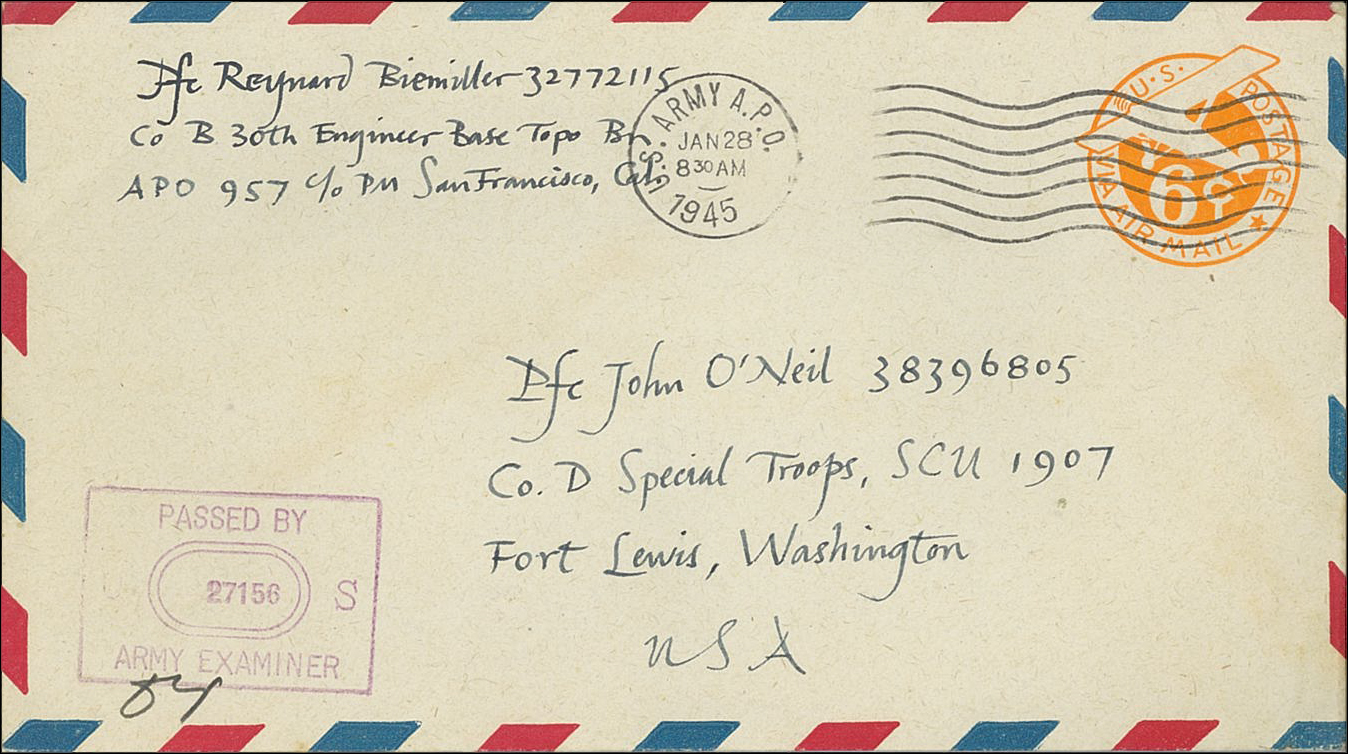 Pfc Reynard Biemiller 32772115
Co B 30th Engineer Base Topo Bn
APO 957 c/o PM San Francisco, Cal.
U.S. ARMY A.P.O.
JAN 28
8 30 AM
1945
U.S. POSTAGE
6¢
VIA AIR MAIL
Pfc John O'Neil 38396805
Co. D Special Troops, SCU 1907
Fort Lewis, Washington
USA
PASSED BY
U 27156 S
ARMY EXAMINER